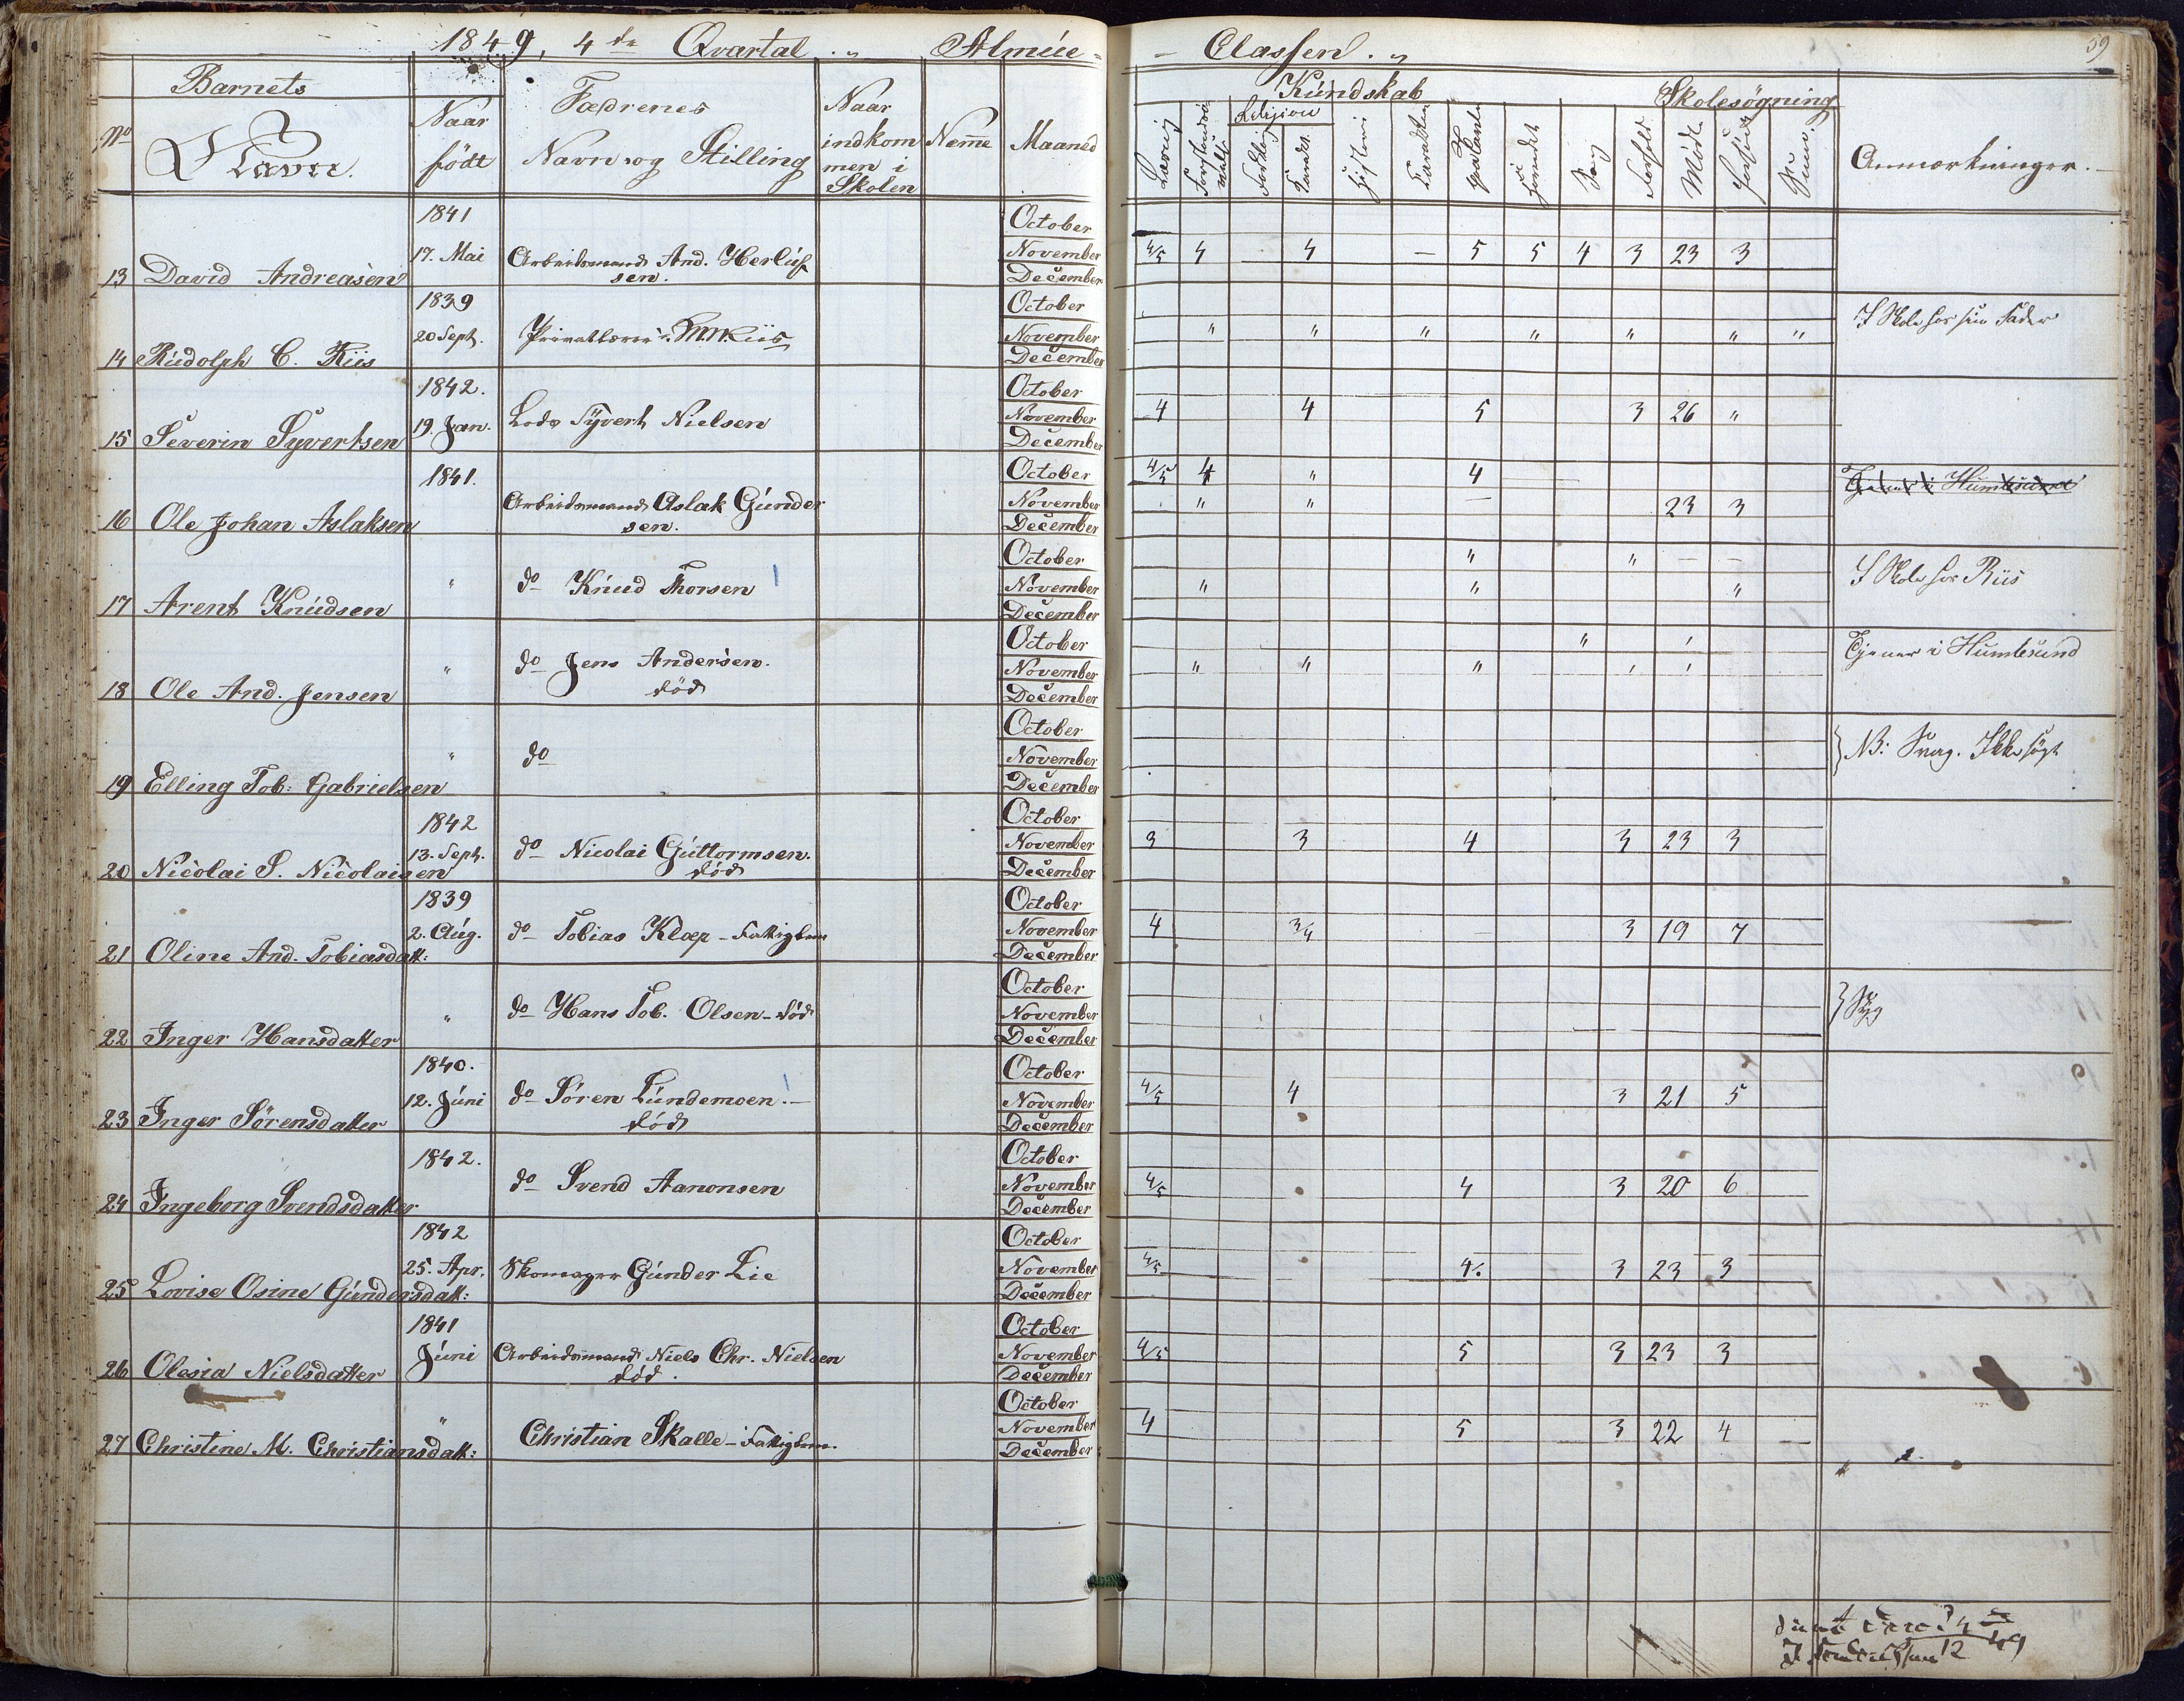 1849, 4de Qvartal. Almúe- Classen.
59
Barnets
Kúndskab Skolesøgning
No Navn. Naar født Fædrenes Navn og Stilling Naar indkommen i Skolen Næmme Maaned
Religion
Sang Forhold Mødt Anmærkninger.
1841 October
17. Mai Arbeidsmand And. Herlúf November 4/5 4 4 — 5 5 4 3 23 3
13 David Andreasen sen. December
1839 October
I Skole hos sin Fader
20 Sept. Privatlærer Riis November " " " " " " "
14 Rúdolph C. Riis December
1842. October
19. Jan. Lods Syvert Nielsen November 4 4 5 3 26 "
15 Severin Syvertsen December
1841. October 4/5 4 " 4
Tjener i Humlesund
Arbeidsmand Aslak Gúnder November " " — 23 3
16 Ole Johan Aslaksen sen. December
October " " – –
I Skole hos Riis
" do Knúd Thorsen November " " "
17 Arent Knúdsen December
October " '
Tjener i Humlesund
" do Jens Andersen. November " " " ' '
18 Ole And. Jensen død December
October
NB: Svag. Ikke søgt
" do November
19 Elling Tob: Gabrielsen December
1842 October
13. Sept. do Nicolai Gúttormsen. November 3 3 4 3 23 3
20 Nicolai S. Nicolaisen død December
1839 October
2. Aúg. do Tobias Klæp – Fattiglem November 4 3/4 — 3 19 7
21 Oline And. Tobiasdatt: December
October
Syg
" do Hans Tob. Olsen – død November
22 Inger Hansdatter December
1840. October
12. Júni do Søren Lúndemoen. November 4/5 4 3 21 5
23 Inger Sørensdatter død December
1842. October
do Svend Aanonsen November 4/5 4 3 20 6
24 Ingeborg Svendsdatter December
1842 October
25. Apr. Skomager Gúnder Lie November 4/5 4. 3 23 3
25 Lovise Osine Gúndersdatt: December
1841 October
Júni Arbeidsmand Niels Chr. Nielsen November 4/5 5 3 23 3
26 Olasia Nielsdatter død. December
October
" Christian Skalle – Fattiglem. November 4 5 3 22 4
27 Christine M. Christiansdatt: December